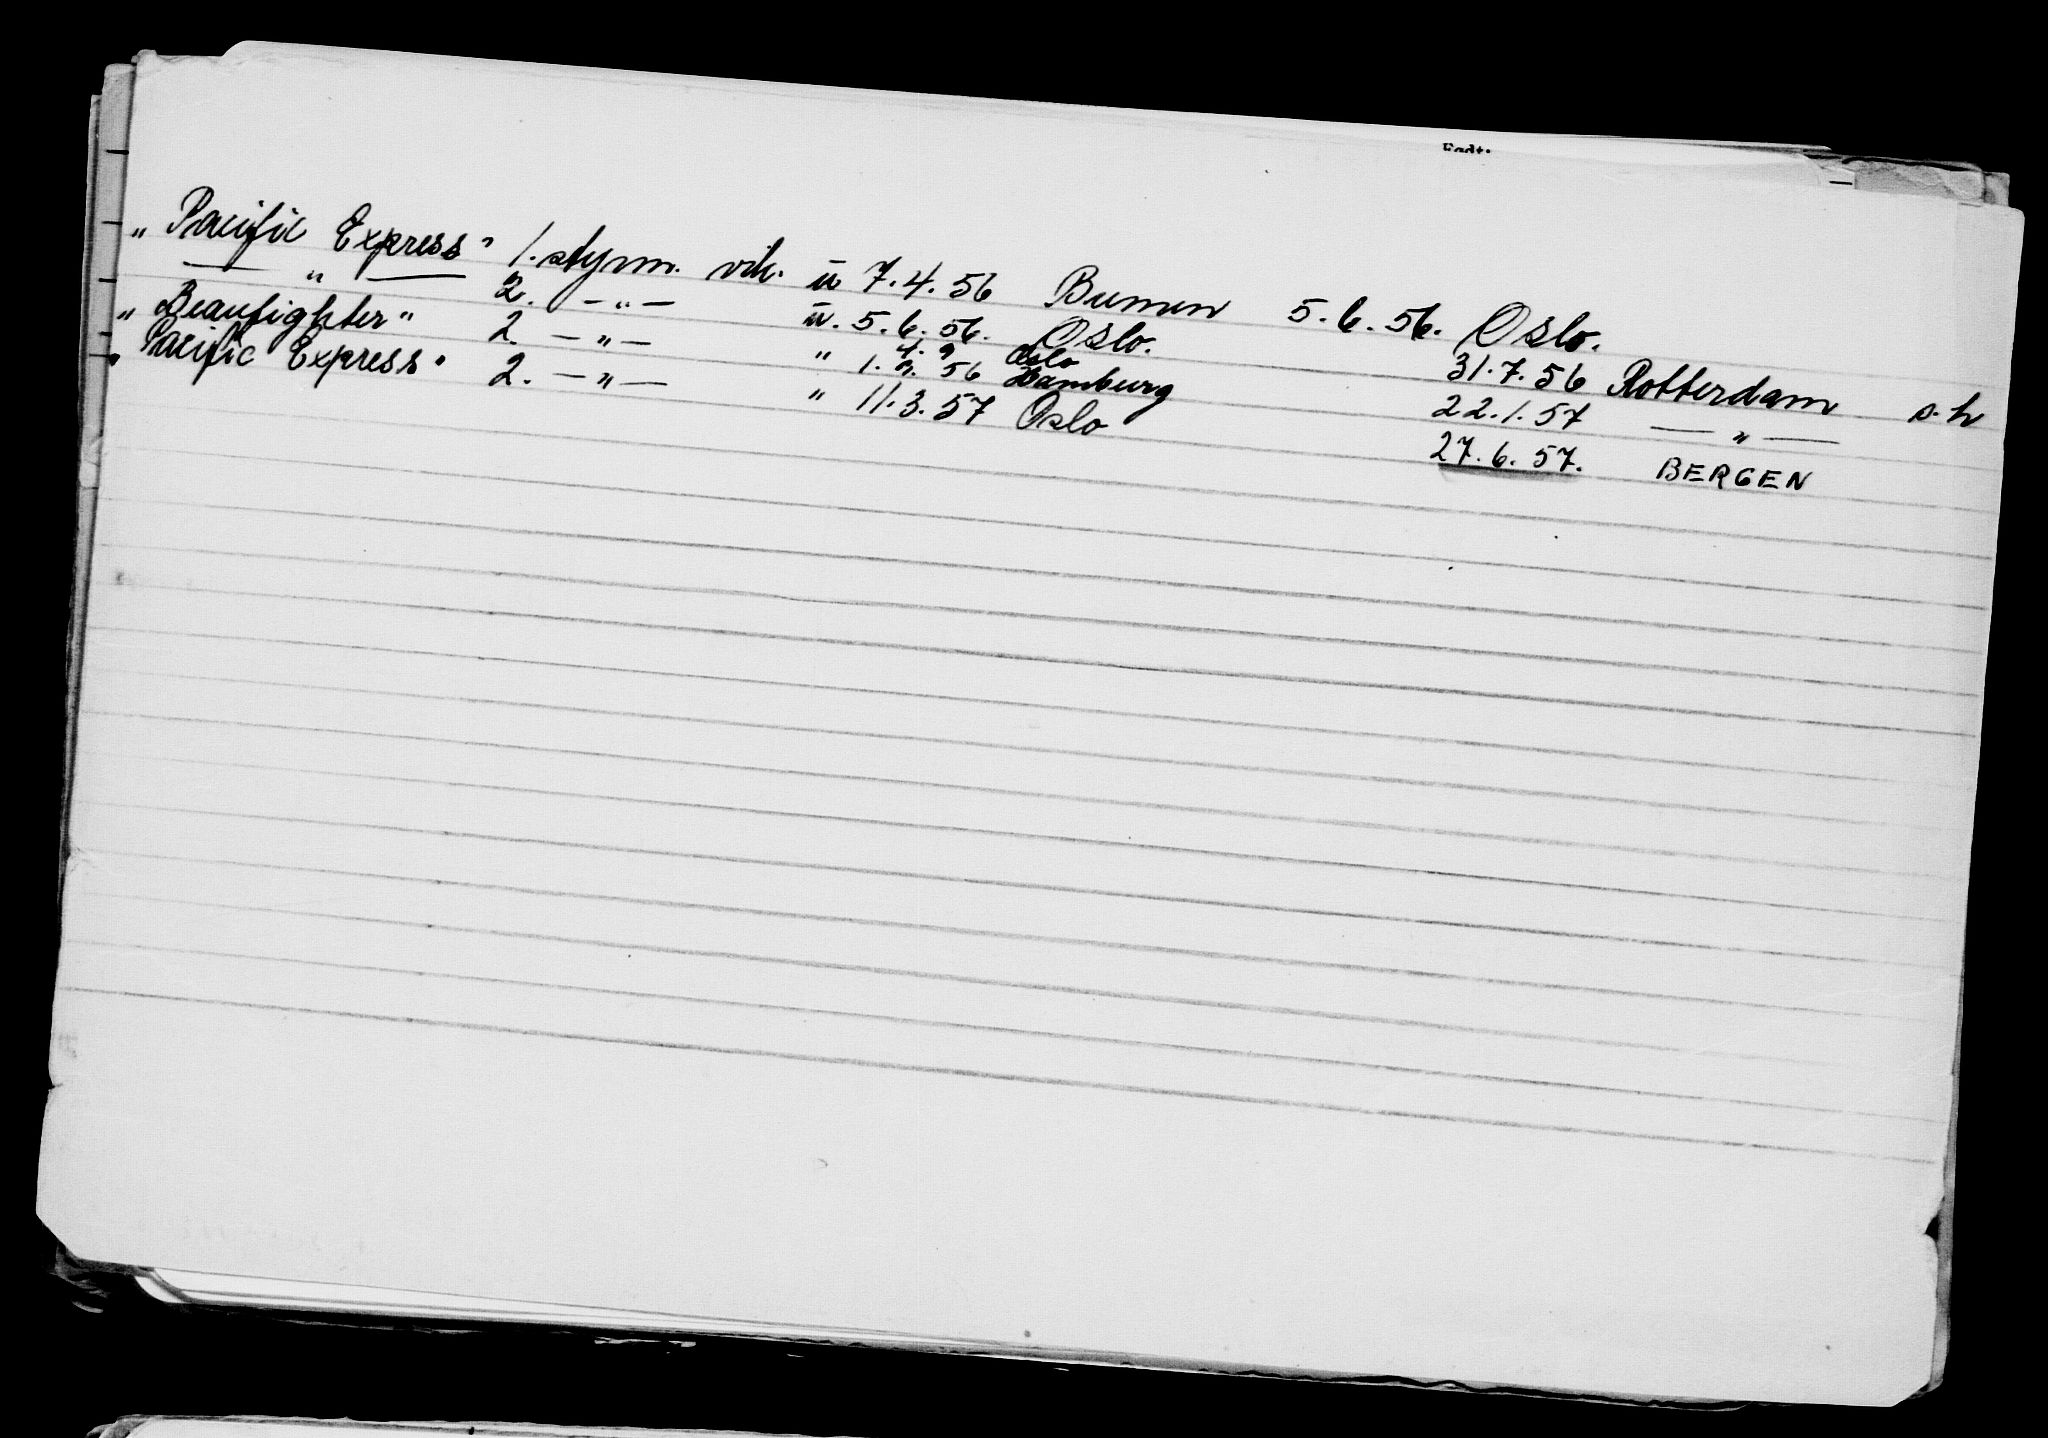 Født:
„ Pacific Express" 1. styrm. vik. u 7.4.56 Bremen 5.6.56. Oslo.
— „ — 2. — „ — u. 5.6.56. Oslo. 31.7.56 Rotterdam s.h
„ Beaufighter" 2. — „ — " 1. 9. 56 Hamburg 22.1.57 — „ —
4. 9 Oslo
„ Pacific Express" 2. — „ — " 11.3.57 Oslo 27.6.57. BERGEN